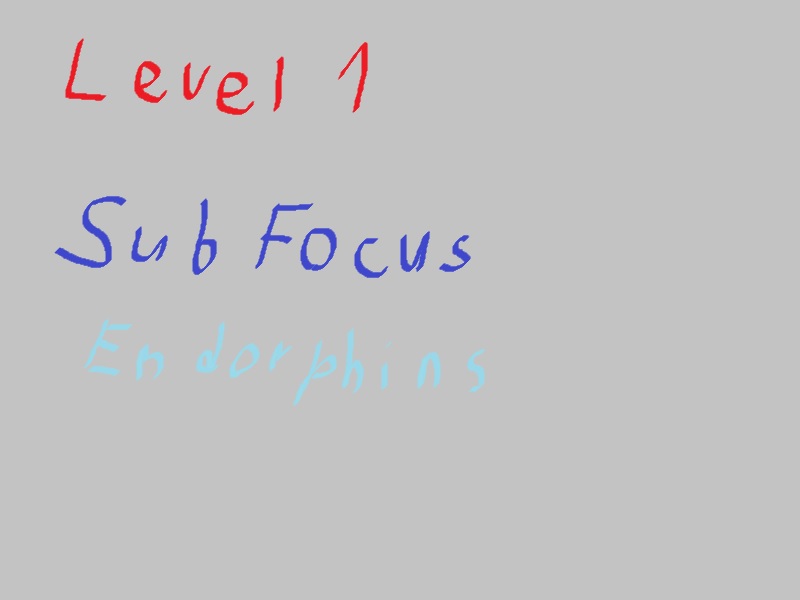 Level 1
Sub Focus
Endorphins